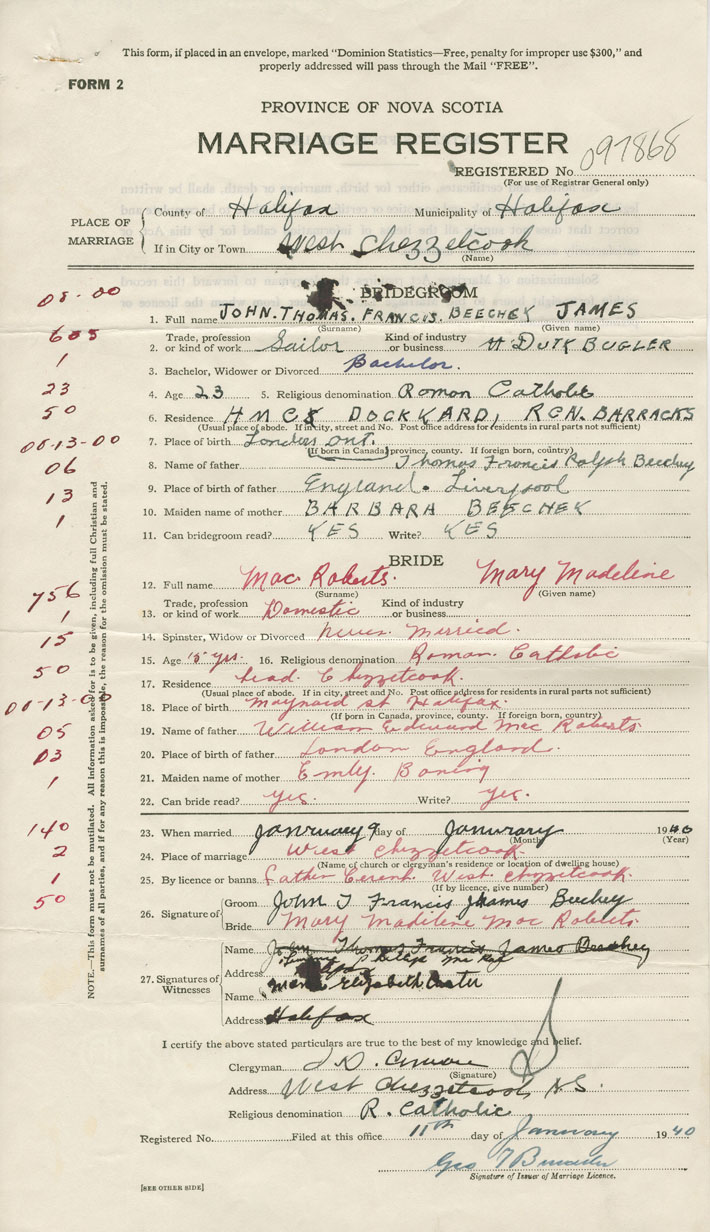 This form, if placed in an envelope, marked "Dominion Statistics—Free, penalty for improper use $300," and
properly addressed will pass through the Mail "FREE".
FORM 2
PROVINCE OF NOVA SCOTIA
MARRIAGE REGISTER
REGISTERED No. 097868
(For use of Registrar General only)
PLACE OF MARRIAGE
County of Halifax Municipality of Halifax
If in City or Town West Chezzetcook
(Name)
BRIDEGROOM
05-00
1. Full name JOHN. THOMAS. FRANCIS. BEECHEY JAMES
(Surname) (Given name)
605
2. Trade, profession or kind of work Sailor Kind of industry or business BUGLER
1
3. Bachelor, Widower or Divorced Bachelor.
23
4. Age 23 5. Religious denomination Roman Catholic
50
6. Residence DOCKYARD, RCN. BARRACKS
(Usual place of abode. If in city, street and No. Post office address for residents in rural parts not sufficient)
06-13-00
7. Place of birth London ont.
(If born in Canada, province, county. If foreign born, country)
06
8. Name of father Thomas Francis Ralph Beechey
13
9. Place of birth of father England. Liverpool
1
10. Maiden name of mother BARBARA BEECHEY
11. Can bridegroom read? YES Write? YES
BRIDE
12. Full name Mac Roberts. Mary Madeline
(Surname) (Given name)
756
13. Trade, profession or kind of work Domestic Kind of industry or business
1
14. Spinster, Widow or Divorced never Married.
15
15. Age 15 yrs. 16. Religious denomination Roman. Catholic
50
17. Residence Head Chezzetcook.
(Usual place of abode. If in city, street and No. Post office address for residents in rural parts not sufficient)
06-13-00
18. Place of birth Maynard st Halifax.
(If born in Canada, province, county. If foreign born, country)
05
19. Name of father William Edward Mac Roberts.
03
20. Place of birth of father London England.
1
21. Maiden name of mother Emily.
22. Can bride read? yes. Write? yes.
140
23. When married January 9 day of January 1940
(Month) (Year)
2
24. Place of marriage West Chezzetcook.
(Name of church or clergyman's residence or location of dwelling house)
1
25. By licence or banns. Father West. Chezzetcook.
(If by licence, give number)
50
26. Signature of
Groom John T Francis James Beechey
Bride Mary Madiline Mac Roberts.
27. Signatures of Witnesses
Name John Thomas Francis James Beechey
Address
Name Elizabeth
Address Halifax
I certify the above stated particulars are true to the best of my knowledge and belief.
Clergyman
(Signature)
Address West Chezzetcook, N.S.
Religious denomination R. Catholic
Registered No. Filed at this office 11th day of January 1940
Geo
Signature of Issuer of Marriage Licence.
[SEE OTHER SIDE]
NOTE.—This form must not be mutilated. All information asked for is to be given, including full Christian and
surnames of all parties, and if for any reason this is impossible, the reason for the omission must be stated.